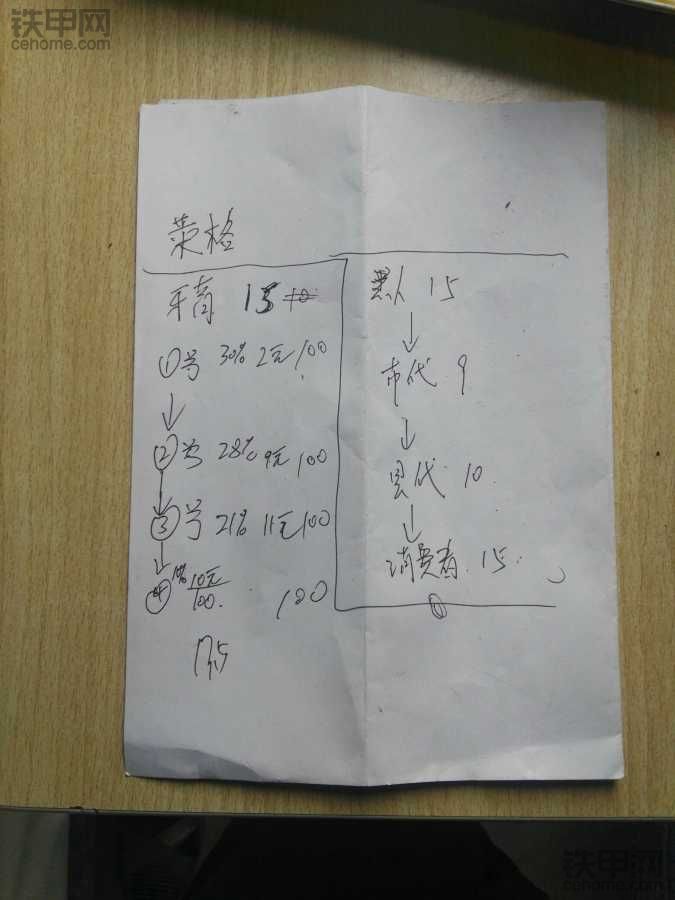 铁甲网
cehome.com
荣格
牙商 15
①号 30% 2元 100
②号 28% 9元 100
③号 21% 11元 100
④ 1% 10元/100. 100
黑人 15
市代 9
县代 10
消费者 15
铁甲网
cehome.com